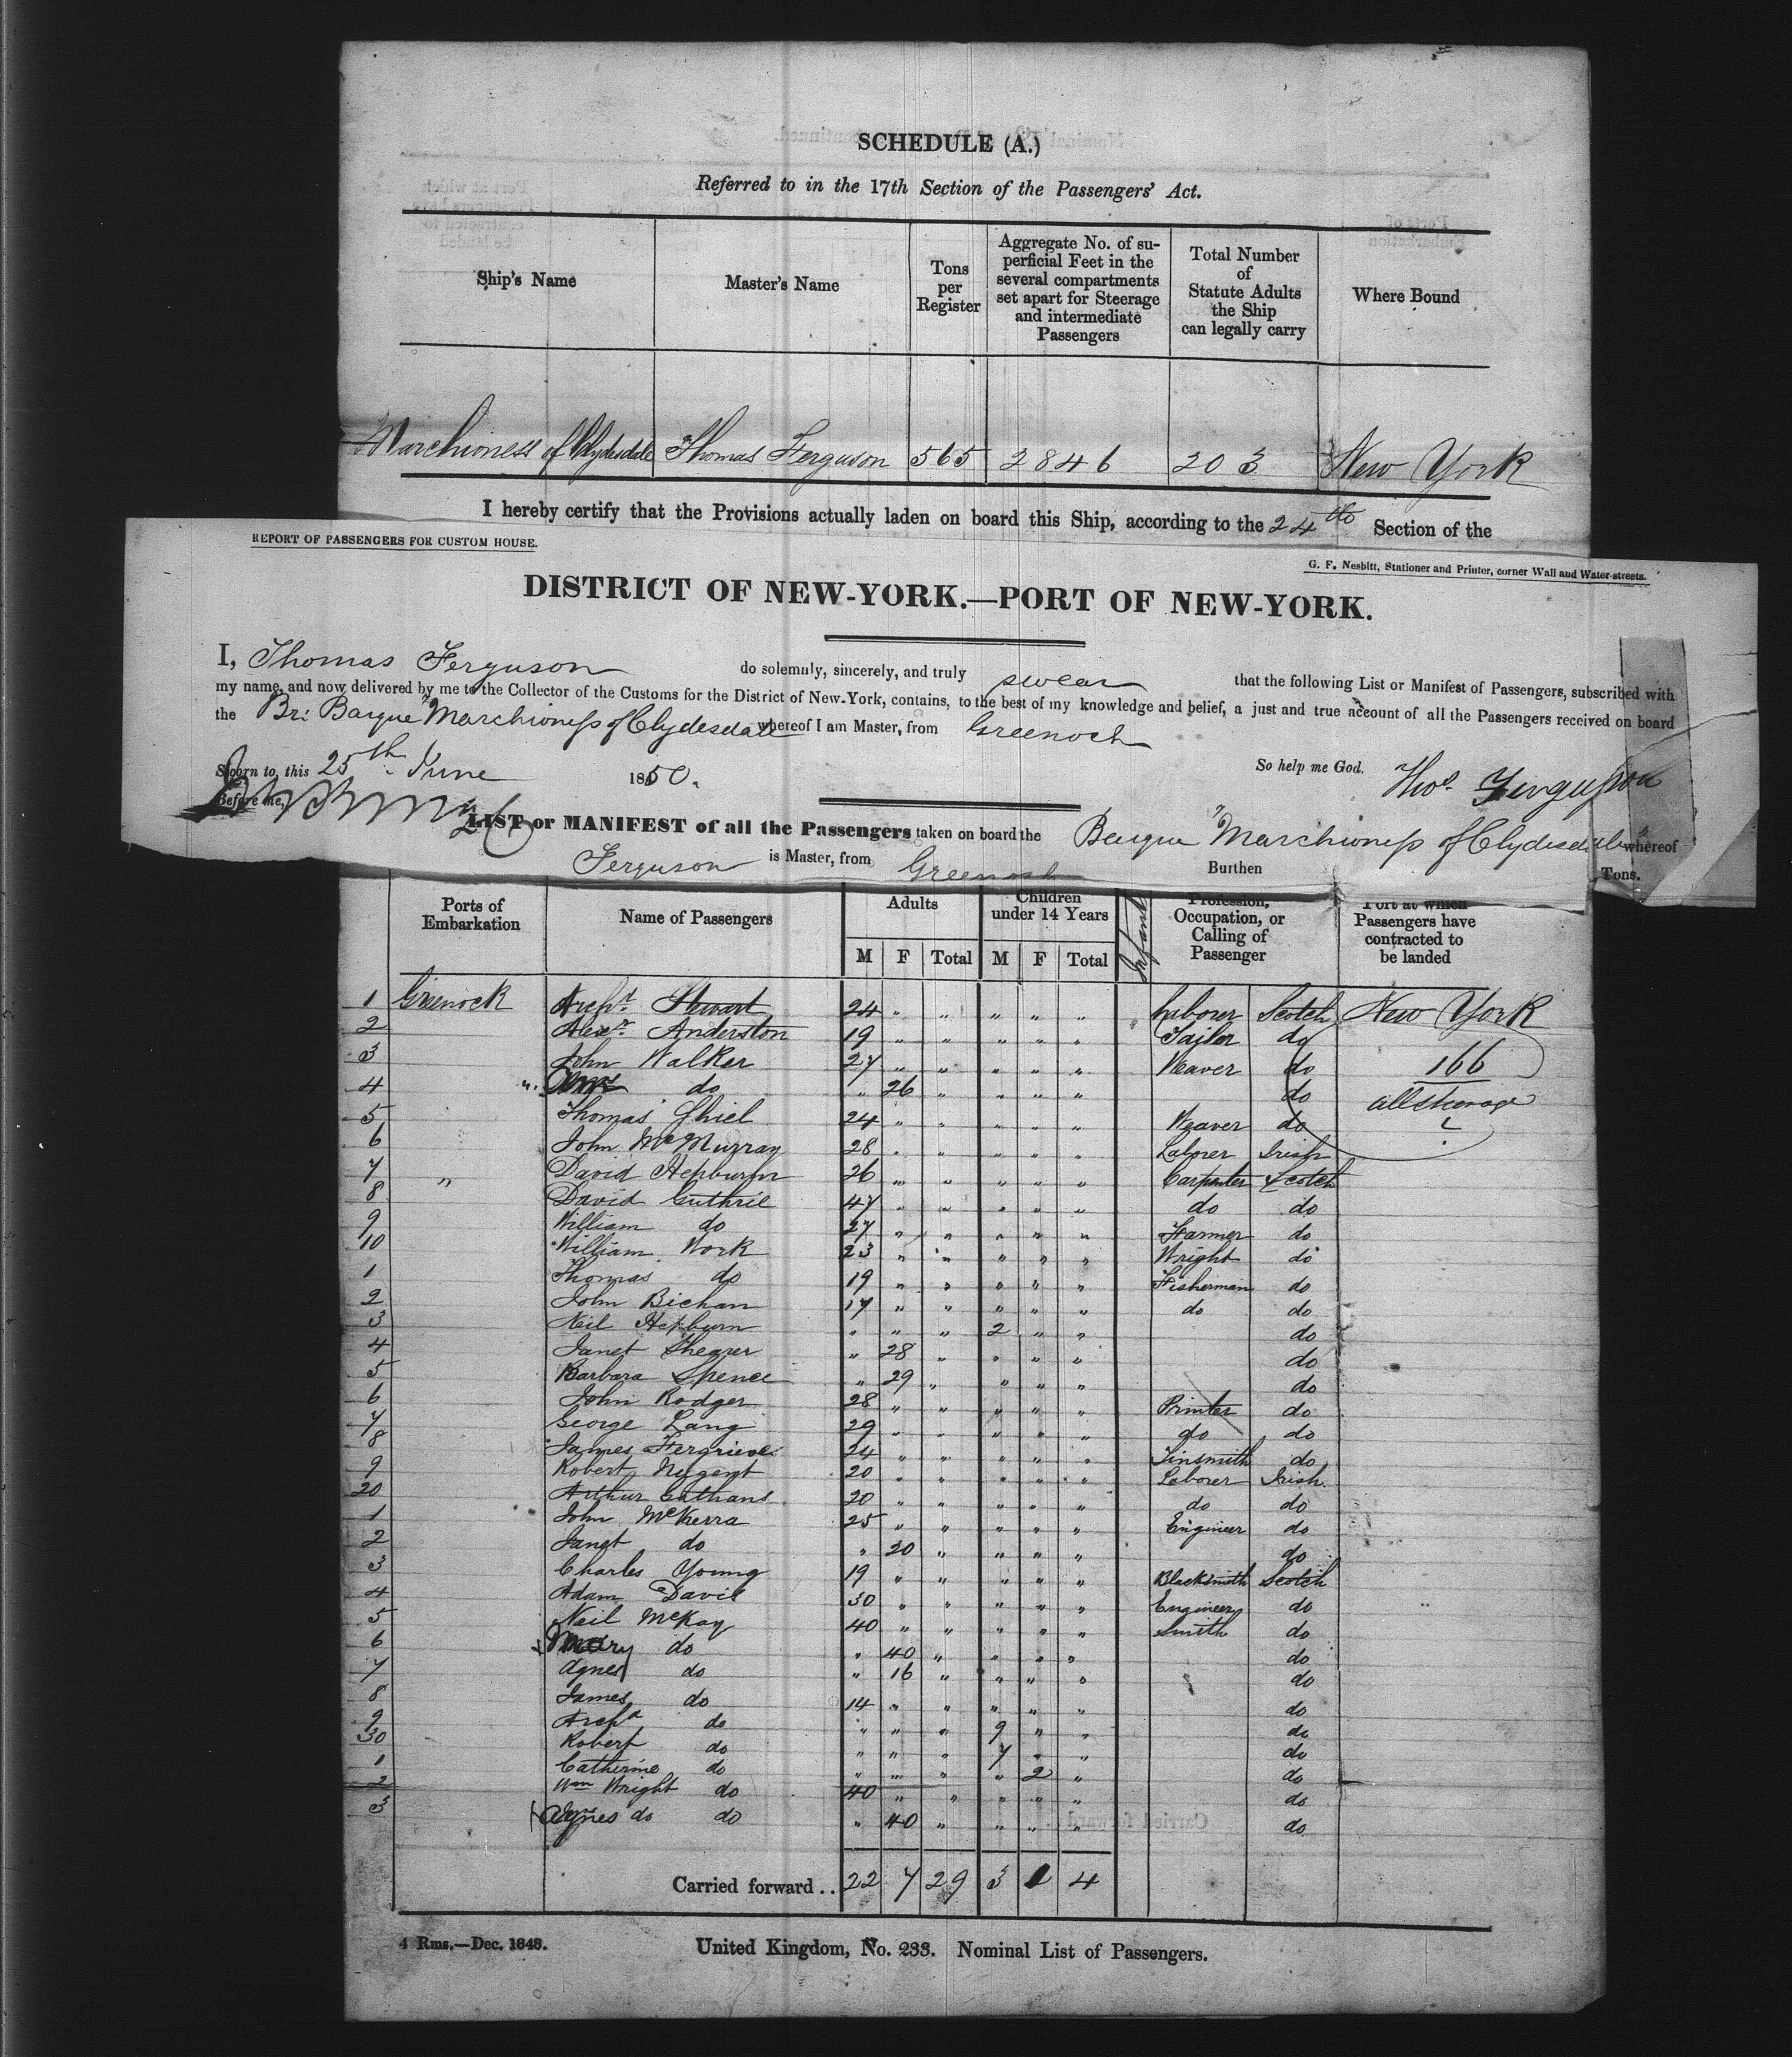 SCHEDULE (A.)
Referred to in the 17th Section of the Passengers' Act.
Ship's Name Master's Name Tons per Register Aggregate No. of superficial Feet in the several compartments set apart for Steerage and intermediate Passengers Total Number of Statute Adults the Ship can legally carry Where Bound
Marchioness of Clydesdale Thomas Ferguson 565 2846 203 New York
I hereby certify that the Provisions actually laden on board this Ship, according to the 24th Section of the
REPORT OF PASSENGERS FOR CUSTOM HOUSE.
G. F. Nesbitt, Stationer and Printer, corner Wall and Water-streets.
DISTRICT OF NEW-YORK.—PORT OF NEW-YORK.
I, Thomas Ferguson do solemnly, sincerely, and truly swear that the following List or Manifest of Passengers, subscribed with
my name, and now delivered by me to the Collector of the Customs for the District of New-York, contains, to the best of my knowledge and belief, a just and true account of all the Passengers received on board
the Br: Barque Marchioness of Clydesdale whereof I am Master, from Greenock
Sworn to, this 25th June 1850. So help me God. Thos. Ferguson
Before me,
LIST or MANIFEST of all the Passengers taken on board the Barque Marchioness of Clydesdale whereof
Ferguson is Master, from Greenock Burthen Tons.
Ports of Embarkation Name of Passengers Adults Children under 14 Years Infant Profession, Occupation, or Calling of Passenger Port at which Passengers have contracted to be landed
M F Total M F Total
1 Greenock Archd. Stewart 24 " " " " " Laborer Scotch New York
2 Alexr. Anderston 19 " " " " " Tailor do
3 John Walker 27 " " " " " Weaver do 166
4 do " 26 " " " " do all Steerage
5 Thomas 24 " " " " " Weaver do
6 John McMurray 28 " " " " " Laborer Irish
7 " David Hepburn 26 " " " " " Carpenter Scotch
8 David Guthrie 47 " " " " " do do
9 William do 27 " " " " " Farmer do
10 William Work 23 " " " " " Wright do
1 Thomas do 19 " " " " " Fisherman do
2 John Bichan 17 " " " " " do do
3 Neil Hepburn " " " 2 " " do
4 Janet Shearer " 28 " " " " do
5 Barbara Spence " 29 " " " " do
6 John Rodger 28 " " " " " Printer do
7 George Lang 29 " " " " " do do
8 James Fergrieve 24 " " " " " Tinsmith do
9 Robert Nugent 20 " " " " " Laborer Irish
20 Arthur 20 " " " " " do do
1 John McKerra 25 " " " " " Engineer do
2 Janet do " 20 " " " " do
3 Charles Young 19 " " " " " Blacksmith Scotch
4 Adam Davie 30 " " " " " Engineer do
5 Neil McKay 40 " " " " " Smith do
6 Mary do " 40 " " " " do
7 Agnes do " 16 " " " " do
8 James do 14 " " " " " do
9 Archd do " " " 9 " " do
30 Robert do " " " 7 " " do
1 Catherine do " " " " 2 " do
2 Wm Wright do 40 " " " " " do
3 Agnes do do " 40 " " " " do
Carried forward .. 22 7 29 3 1 4
4 Rms.—Dec. 1848. United Kingdom, No. 233. Nominal List of Passengers.